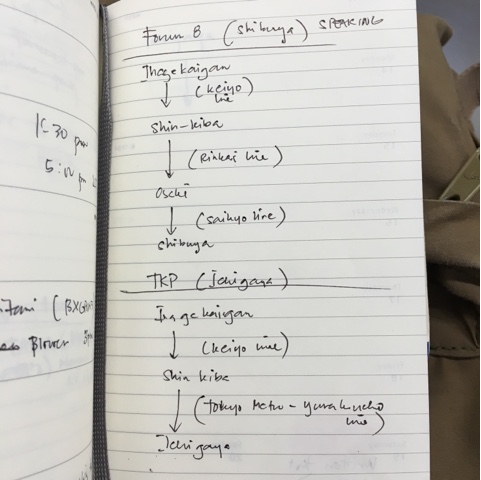 5:00 pm
Blower
Forum 8 (Shibuya) SPEAKING
Inagekaigan
(Keiyo
line)
Shin-kiba
(Rinkai line)
Osaki
(Saikyo line)
Shibuya
TKP (Ichigaya)
Inagekaigan
(Keiyo line)
Shin kiba
(Tokyo Metro - yurakucho
line)
Ichigaya